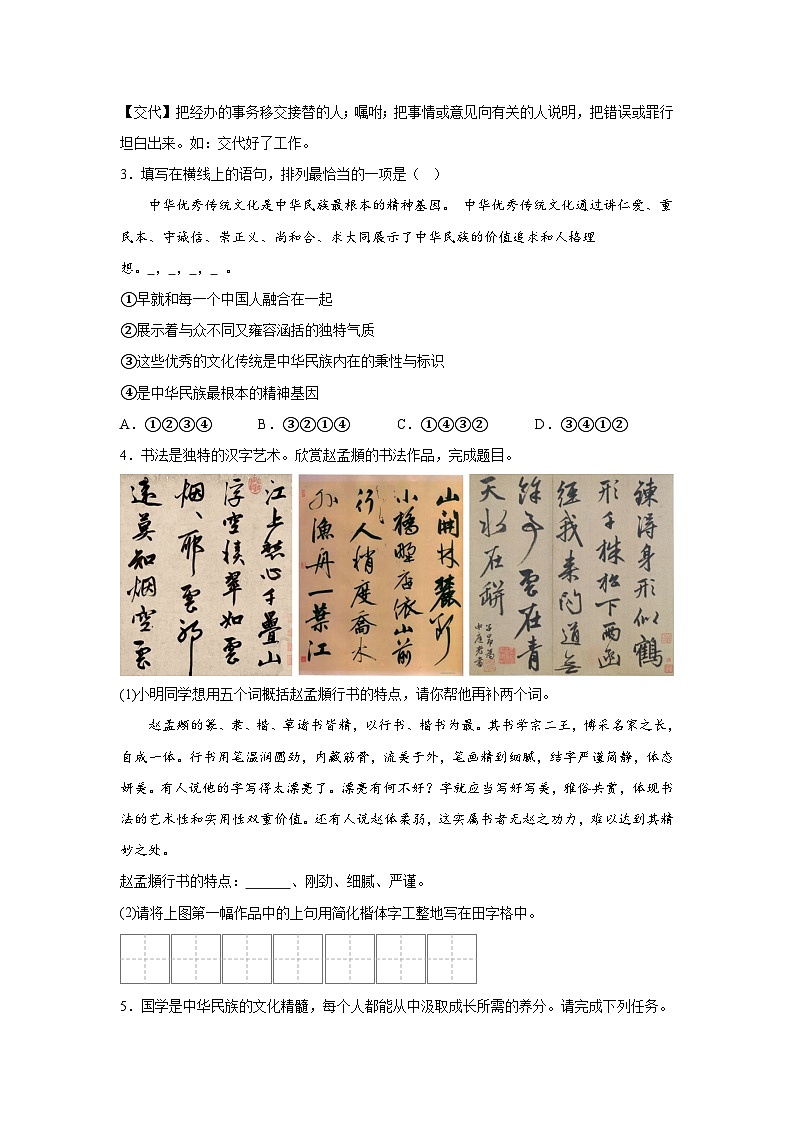 【交代】把经办的事务移交接替的人；嘱咐；把事情或意见向有关的人说明，把错误或罪行
坦白出来。如：交代好了工作。
3．填写在横线上的语句，排列最恰当的一项是（　）
中华优秀传统文化是中华民族最根本的精神基因。 中华优秀传统文化通过讲仁爱、重
民本、守诚信、崇正义、尚和合、求大同展示了中华民族的价值追求和人格理
想。_，_，_，_ 。
①早就和每一个中国人融合在一起
②展示着与众不同又雍容涵括的独特气质
③这些优秀的文化传统是中华民族内在的秉性与标识
④是中华民族最根本的精神基因
A．①②③④ B．③②①④ C．①④③② D．③④①②
4．书法是独特的汉字艺术。欣赏赵孟頫的书法作品，完成题目。
江上愁心千叠山
浮空积翠如云
烟、耶云耶
远莫知烟空云
山开林麓断
小桥野店依山前
行人稍度乔木
外渔舟一叶江
鍊得身形似鹤
形千株松下两函
经我来问道无
馀事云在青
天水在瓶
(1)小明同学想用五个词概括赵孟頫行书的特点，请你帮他再补两个词。
赵孟頫的篆、隶、楷、草诸书皆精，以行书、楷书为最。其书学宗二王，博采名家之长，
自成一体。行书用笔温润圆劲，内藏筋骨，流美于外，笔画精到细腻，结字严谨简静，体态
妍美。有人说他的字写得太漂亮了。漂亮有何不好？字就应当写好写美，雅俗共赏，体现书
法的艺术性和实用性双重价值。还有人说赵体柔弱，这实属书者无赵之功力，难以达到其精
妙之处。
赵孟頫行书的特点：______、刚劲、细腻、严谨。
(2)请将上图第一幅作品中的上句用简化楷体字工整地写在田字格中。
5．国学是中华民族的文化精髓，每个人都能从中汲取成长所需的养分。请完成下列任务。